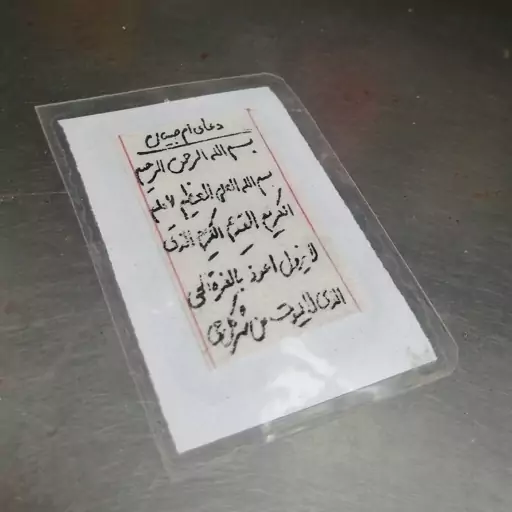 دعای ام صبیان
بسم الله الرحمن الرحیم
بسم الله العلی العظیم
الکریم القدیم الکریم الذی
لا یزول اعوذ بالعزة الحی
الذی لا یموت من شر کل حی